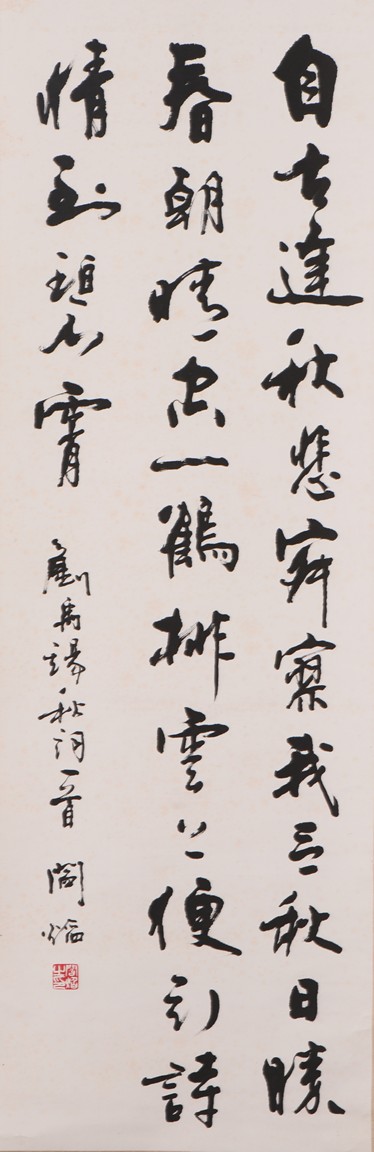 自古逢秋悲寂寥我言秋日勝
春朝晴空一鶴排雲上便引詩
情到碧霄 劉禹錫秋詞一首 閻